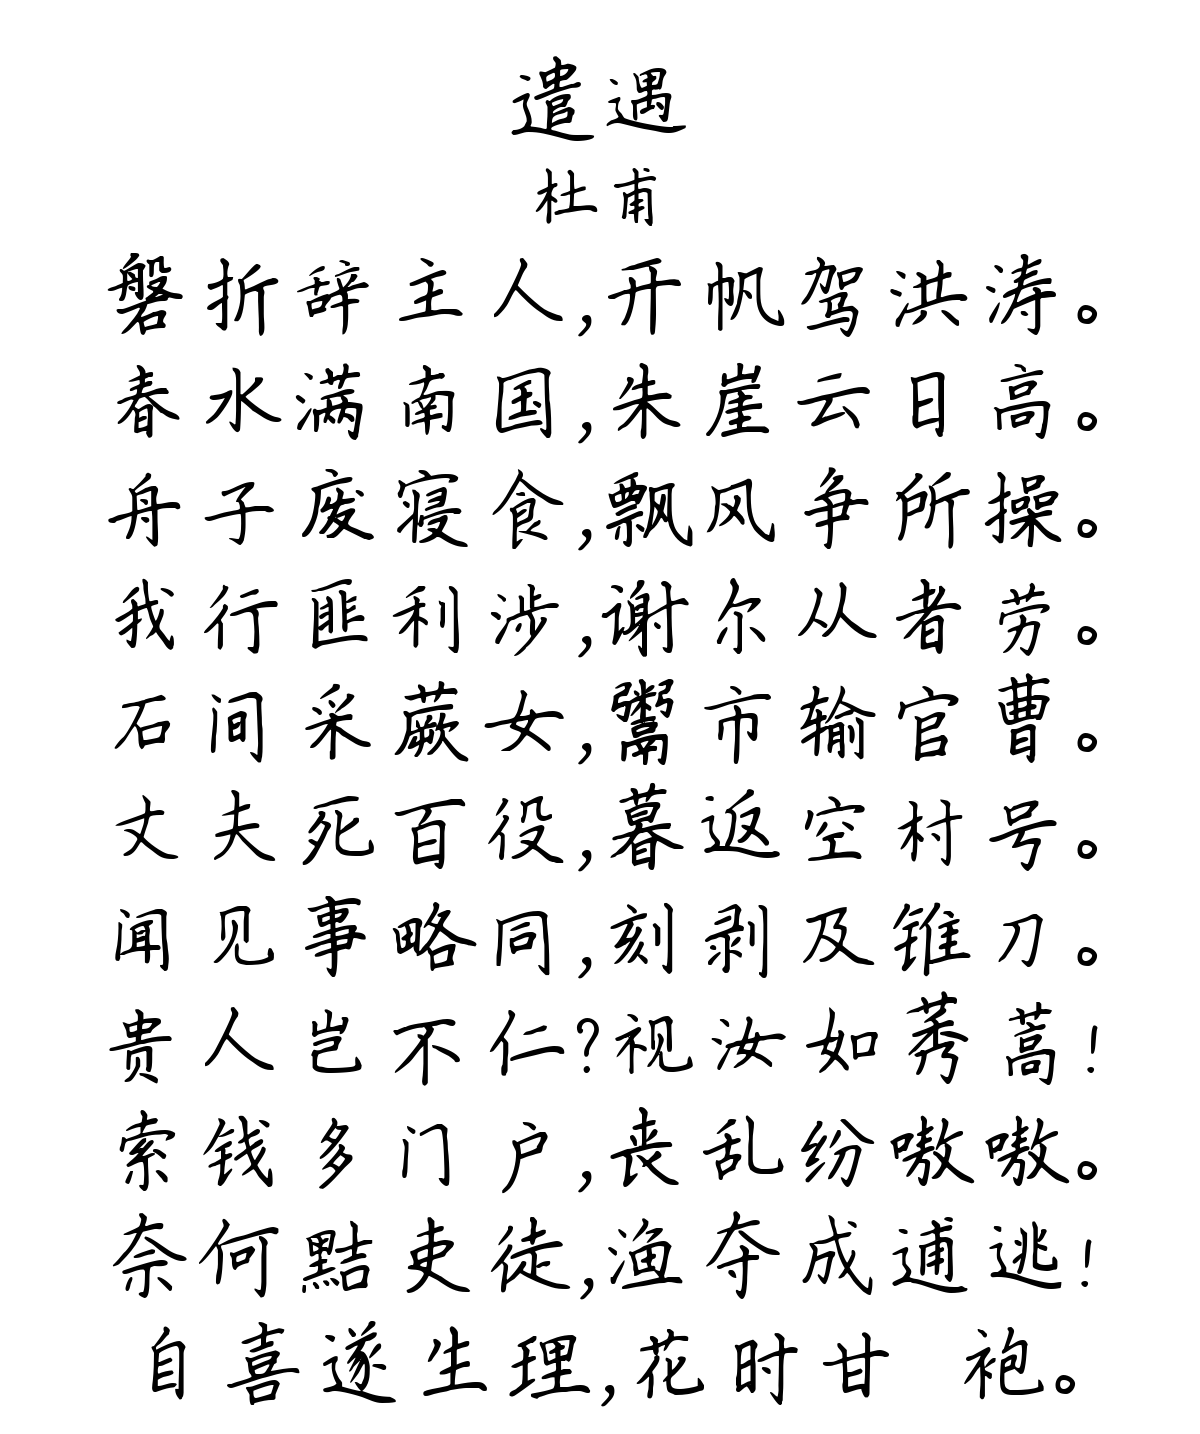 遣遇
杜甫
磐折辞主人,开帆驾洪涛。
春水满南国,朱崖云日高。
舟子废寝食,飘风争所操。
我行匪利涉,谢尔从者劳。
石间采蕨女,鬻市输官曹。
丈夫死百役,暮返空村号。
闻见事略同,刻剥及锥刀。
贵人岂不仁?视汝如莠蒿!
索钱多门户,丧乱纷嗷嗷。
奈何黠吏徒,渔夺成逋逃!
自喜遂生理,花时甘 袍。